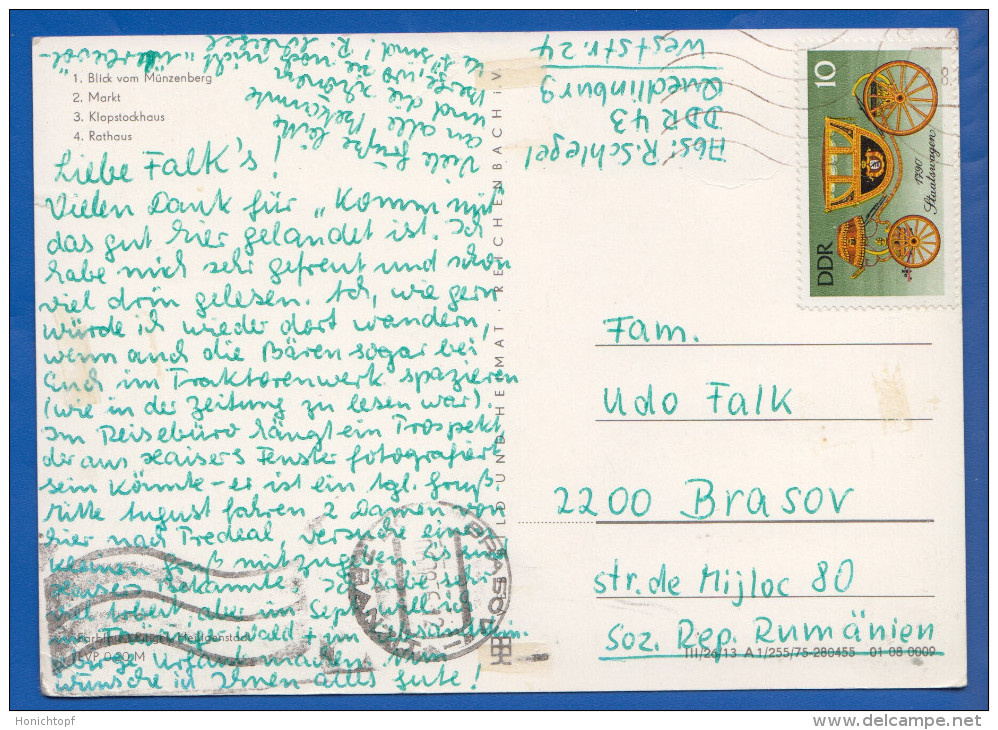 1. Blick vom Münzenberg
2. Markt
3. Klopstockhaus
4. Rathaus
Liebe Falk's!
Vielen Dank für "Komm mit"
das gut hier gelandet ist. Ich
habe mich sehr gefreut und schon
viel drin gelesen. Ach, wie gern
würde ich wieder dort wandern,
wenn auch die Bären sogar bei
Euch im Traktorenwerk spazieren
(wie in der Zeitung zu lesen war).
Im Reisebüro hängt ein Prospekt,
der aus Kaisers Fenster fotografiert
sein könnte - er ist ein tgl. Gruß.
Mitte August fahren 2 Damen von
hier nach Predeal, versuche einen
kleinen Gruß mitzugeben. Es sind
Bekannte. Ich habe sehr
viel aber im Sept. will ich
im wald + im
gebirge Urlaub machen. Nun
wünsche ich Ihnen alles Gute!
Viele Grüße bitte
an alle Bekannte
und die schönen
Berge, wo sie noch nicht
sind! R. Schlegel
EVP 0,20 M
BILD UND HEIMAT · REICHENBACH i. V.
Abs: R. Schlegel
DDR 43
Quedlinburg
Weststr. 24
10
1790
Staatswagen
DDR
Fam.
Udo Falk
2200 Brasov
str. de Mijloc 80
Soz. Rep. Rumänien
BRASOV
III/26/13 A 1/255/75-280455 01 08 0009
Honichtopf
www.delcampe.net